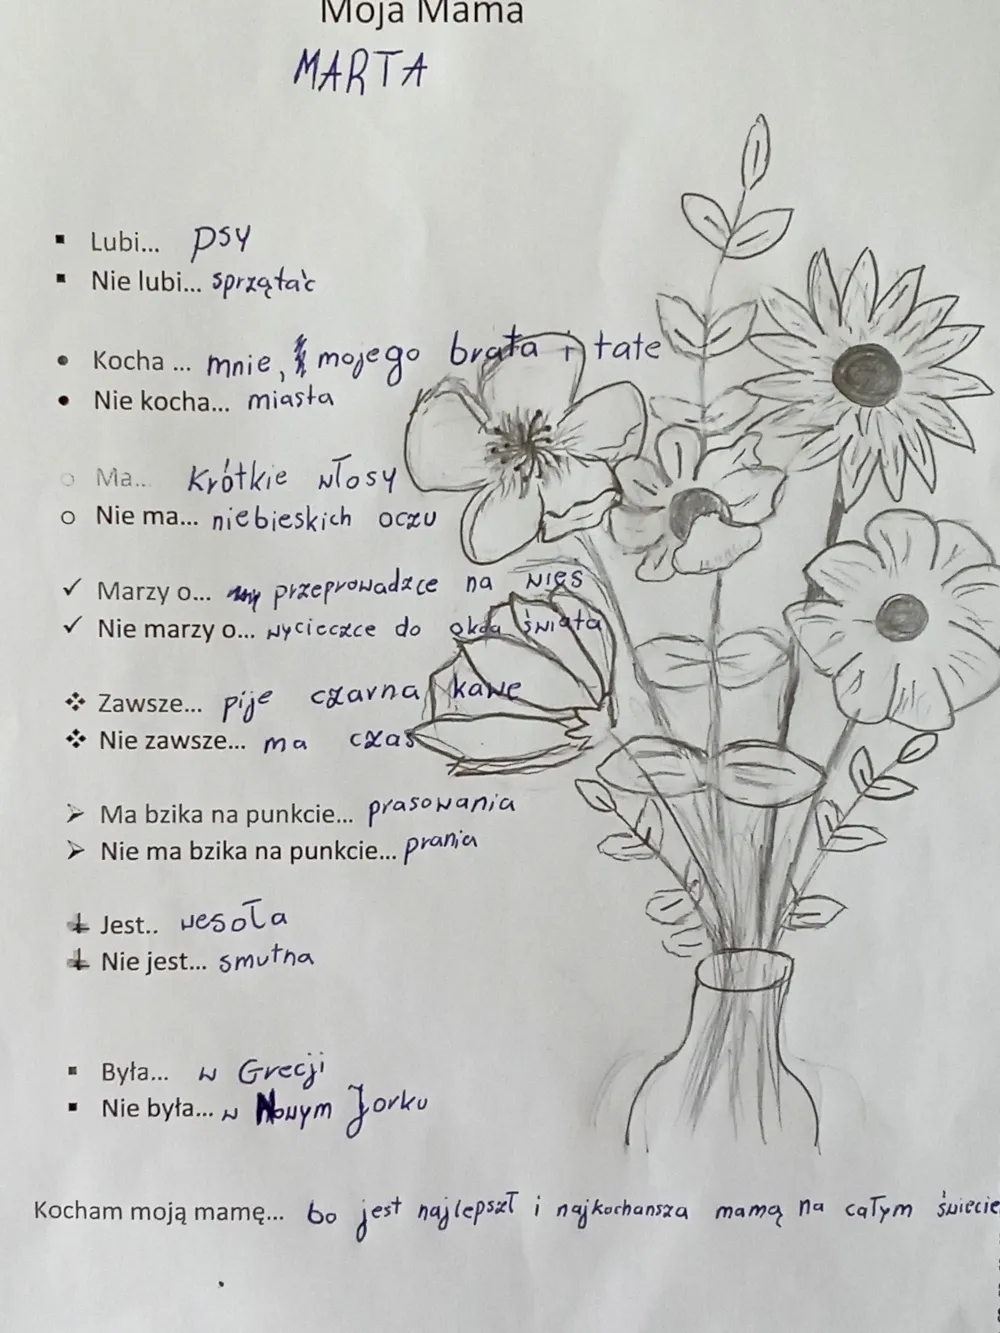 Moja Mama
MARTA
Lubi... psy
Nie lubi... sprzątać
Kocha ... mnie, mojego brata i tate
Nie kocha... miasta
Ma... krótkie włosy
Nie ma... niebieskich oczu
Marzy o... przeprowadzce na wieś
Nie marzy o... wycieczce do okoa świata
Zawsze... pije czarna kawe
Nie zawsze... ma czas
Ma bzika na punkcie... prasowania
Nie ma bzika na punkcie... prania
Jest.. wesoła
Nie jest... smutna
Była... w Grecji
Nie była... w Nowym Jorku
Kocham moją mamę... bo jest i najkochansza mamą na całym świecie